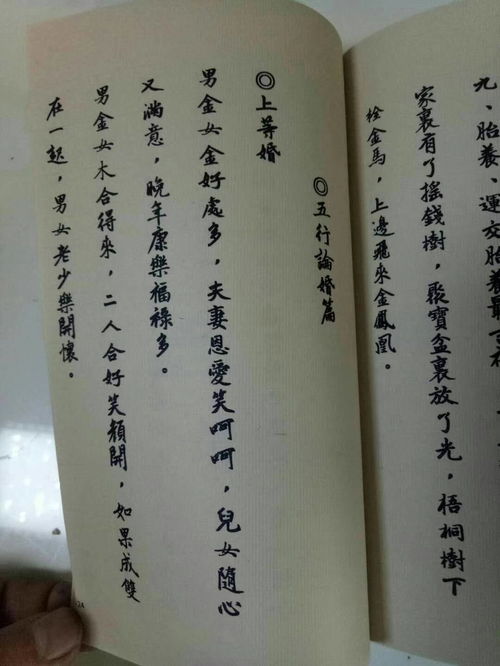 九、胎養、運交胎養最
家裏有了搖錢樹，聚寶盆裏放了光，梧桐樹下
栓金馬，上邊飛來金鳳凰。
◎五行論婚篇
◎上等婚
男金女金好處多，夫妻恩愛笑呵呵，兒女隨心
又滿意，晚年康樂福祿多。
男金女木合得來，二人合好笑頻開，如果成雙
在一起，男女老少樂開懷。